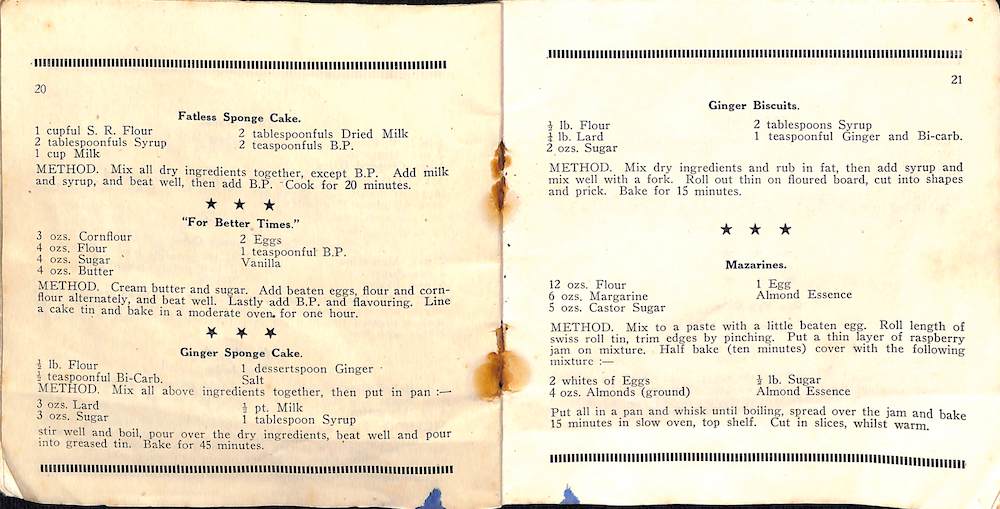 20
Fatless Sponge Cake.
1 cupful S. R. Flour
2 tablespoonfuls Syrup
1 cup Milk
2 tablespoonfuls Dried Milk
2 teaspoonfuls B.P.
METHOD. Mix all dry ingredients together, except B.P. Add milk
and syrup, and beat well, then add B.P. Cook for 20 minutes.
★ ★ ★
"For Better Times."
3 ozs. Cornflour
4 ozs. Flour
4 ozs. Sugar
4 ozs. Butter
2 Eggs
1 teaspoonful B.P.
Vanilla
METHOD. Cream butter and sugar. Add beaten eggs, flour and corn-
flour alternately, and beat well. Lastly add B.P. and flavouring. Line
a cake tin and bake in a moderate oven for one hour.
★ ★ ★
Ginger Sponge Cake.
½ lb. Flour
½ teaspoonful Bi-Carb.
1 dessertspoon Ginger
Salt
METHOD. Mix all above ingredients together, then put in pan :—
3 ozs. Lard
3 ozs. Sugar
½ pt. Milk
1 tablespoon Syrup
stir well and boil, pour over the dry ingredients, beat well and pour
into greased tin. Bake for 45 minutes.
21
Ginger Biscuits.
½ lb. Flour
¼ lb. Lard
2 ozs. Sugar
2 tablespoons Syrup
1 teaspoonful Ginger and Bi-carb.
METHOD. Mix dry ingredients and rub in fat, then add syrup and
mix well with a fork. Roll out thin on floured board, cut into shapes
and prick. Bake for 15 minutes.
★ ★ ★
Mazarines.
12 ozs. Flour
6 ozs. Margarine
5 ozs. Castor Sugar
1 Egg
Almond Essence
METHOD. Mix to a paste with a little beaten egg. Roll length of
swiss roll tin, trim edges by pinching. Put a thin layer of raspberry
jam on mixture. Half bake (ten minutes) cover with the following
mixture :—
2 whites of Eggs
4 ozs. Almonds (ground)
½ lb. Sugar
Almond Essence
Put all in a pan and whisk until boiling, spread over the jam and bake
15 minutes in slow oven, top shelf. Cut in slices, whilst warm.